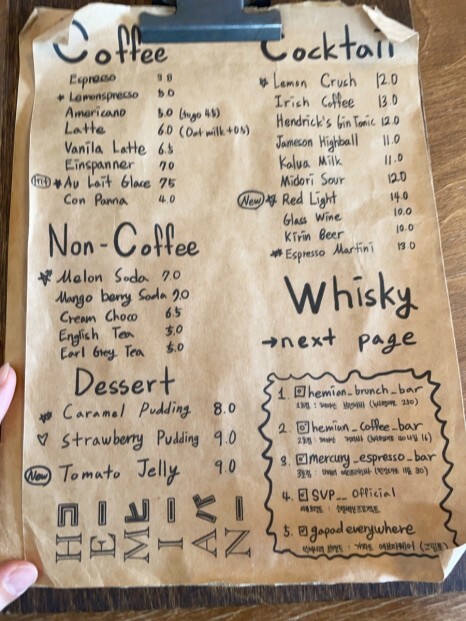 Coffee
Espresso
Lemonspresso 5.0
Americano 5.0 (togo 4.5)
Latte 6.0 (Oat milk +0.5)
Vanilla Latte 6.5
Einspanner 7.0
Au Lait Glace 7.5
Con Panna 4.0
Non-Coffee
Melon Soda 7.0
Mango berry Soda 7.0
Cream Choco 6.5
English Tea 5.0
Earl Grey Tea 5.0
Dessert
Caramel Pudding 8.0
Strawberry Pudding 9.0
New Tomato Jelly 9.0
HEMIAN
Cocktail
Lemon Crush 12.0
Irish Coffee 13.0
Hendrick's Gin Tonic 12.0
Jameson Highball 11.0
Kalua Milk 11.0
Midori Sour 12.0
New Red Light 14.0
Glass Wine 10.0
Kirin Beer 10.0
Espresso Martini 13.0
Whisky
→next page
1. hemian_brunch_bar
2. hemian_coffee_bar
3. mercury_espresso_bar
4. SVP__official
5. gapad everywhere